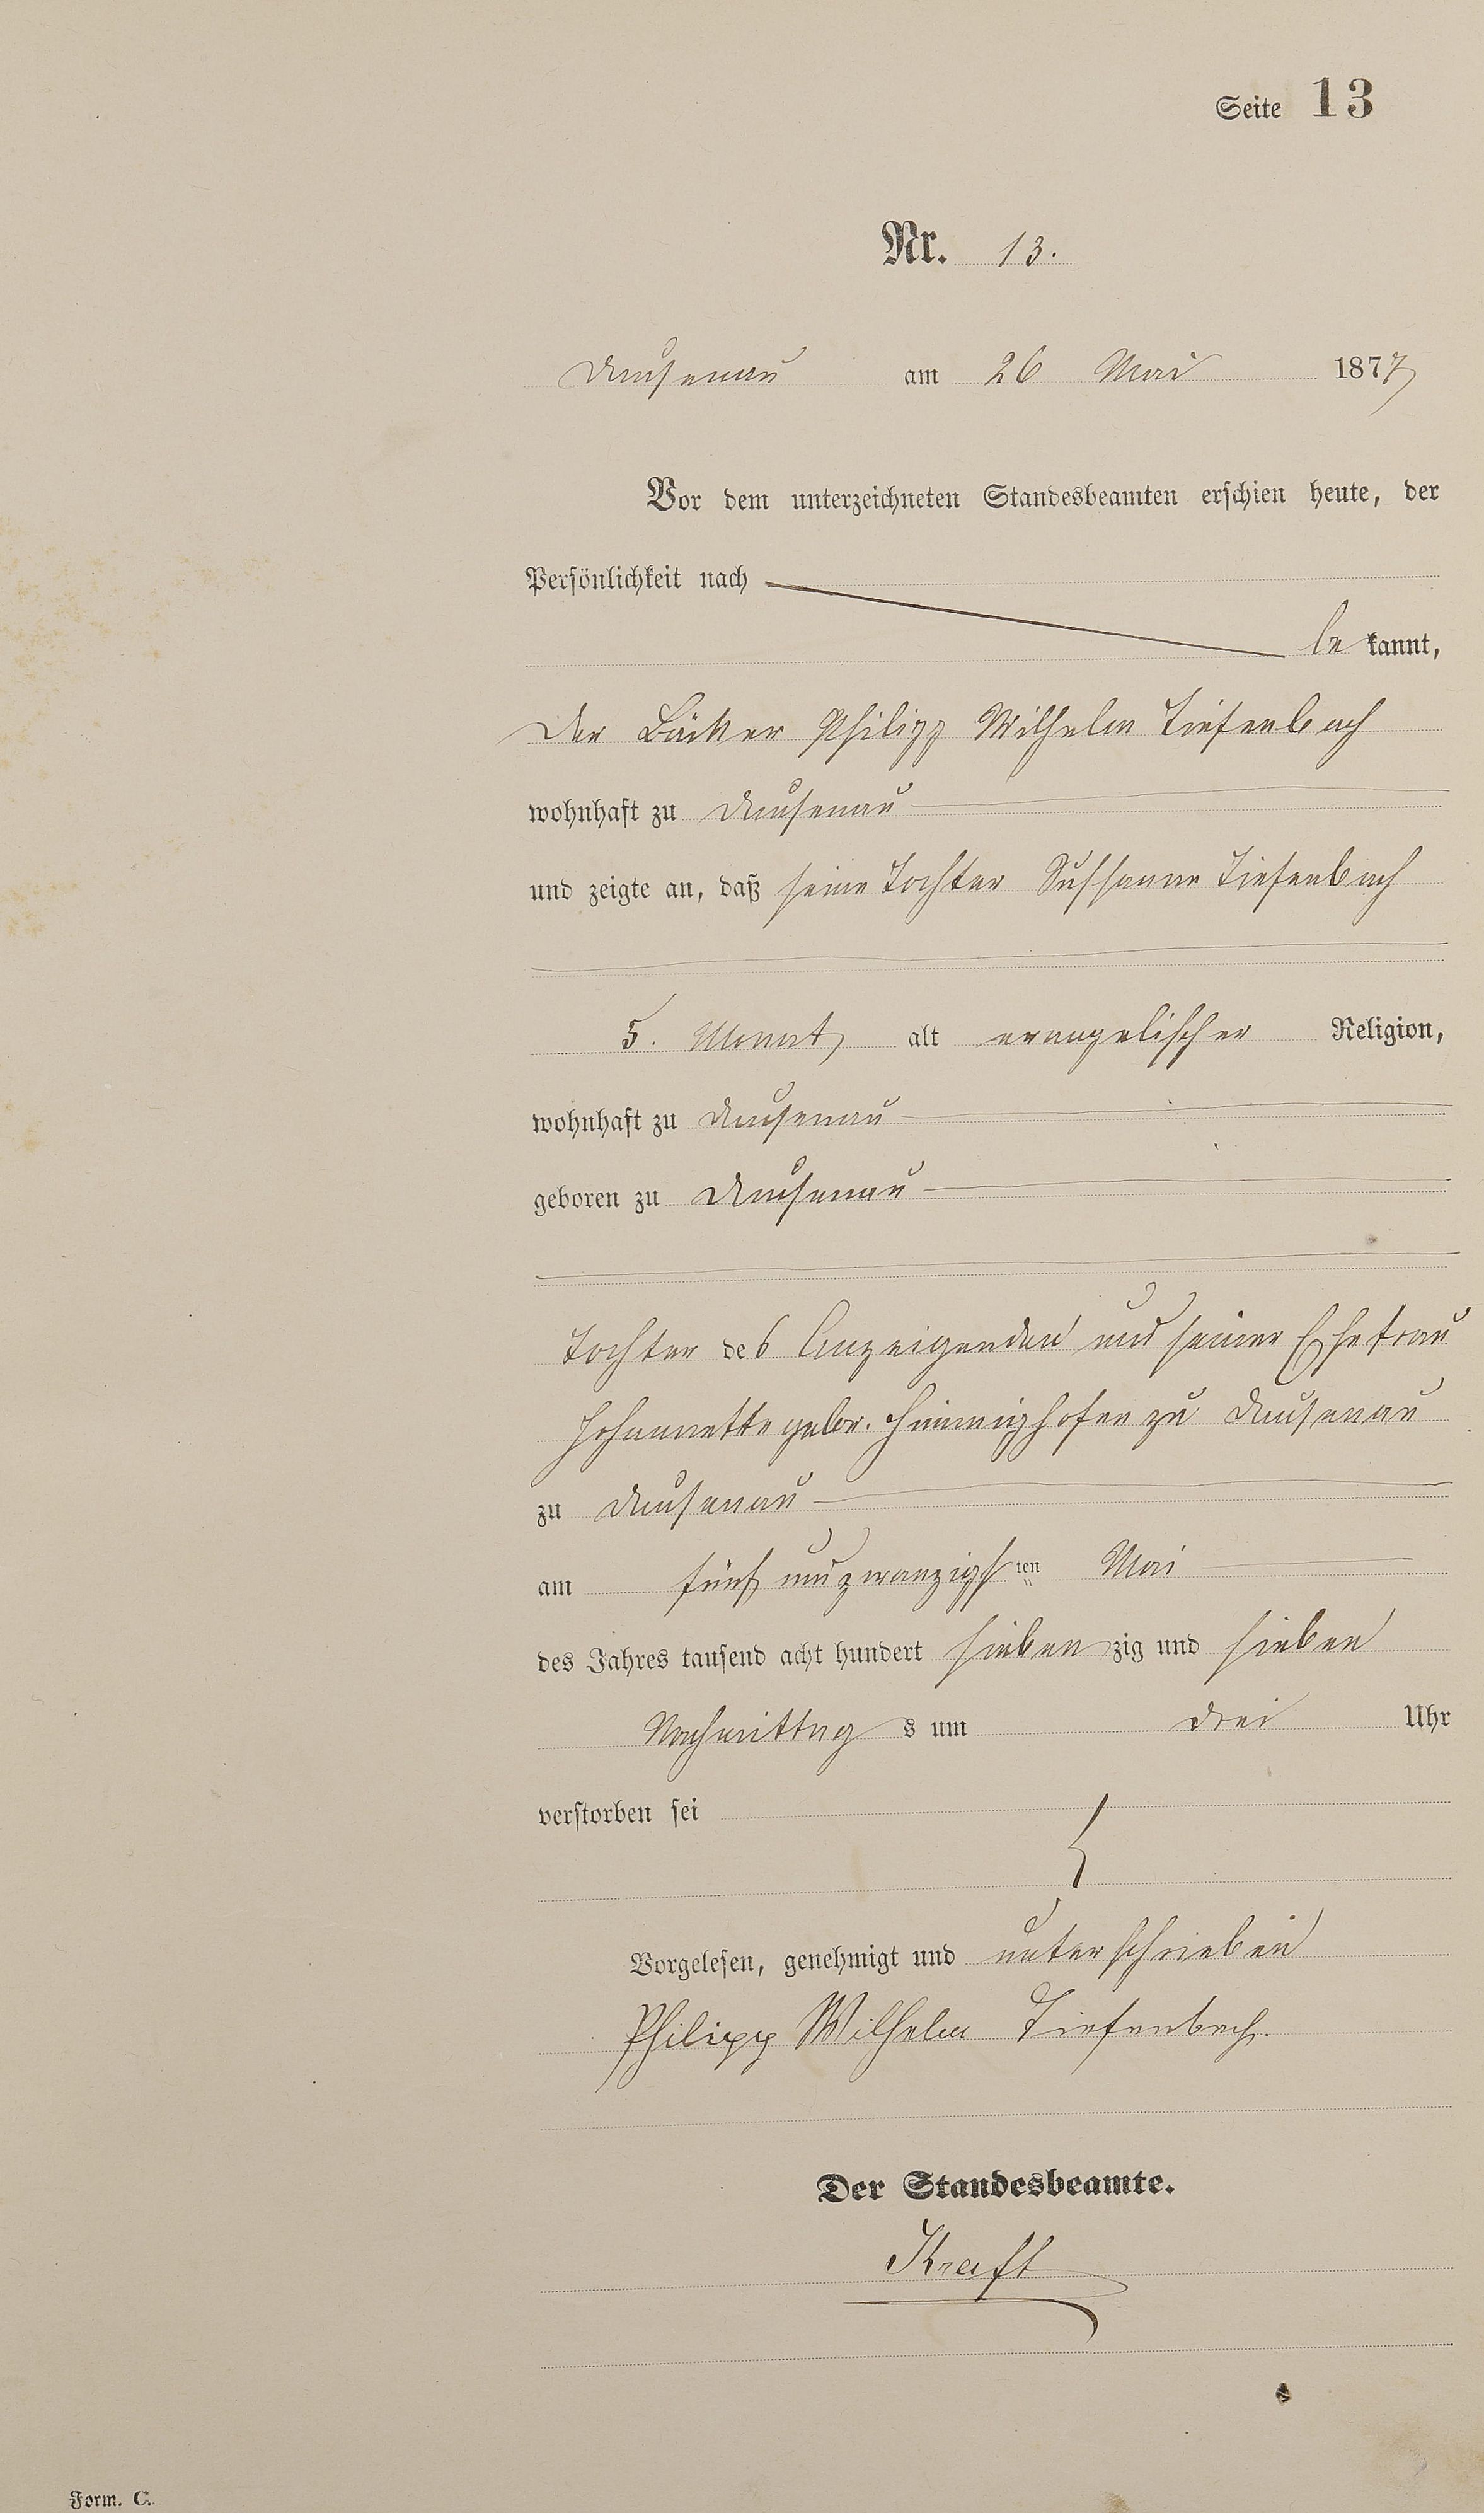 Seite 13
Nr. 13.
Dausenau am 26 Mai 1877
Vor dem unterzeichneten Standesbeamten erschien heute, der
Persönlichkeit nach
be kannt,
der Bäcker Philipp Wilhelm Tiefenbach
wohnhaft zu Dausenau
und zeigte an, daß seine Tochter Sussanne Tiefenbach
5. Monat alt evangelischer Religion,
wohnhaft zu Dausenau
geboren zu Dausenau
Tochter des Anzeigenden und seiner Ehefrau
Johannette gebr. Himmighofen zu Dausenau
zu Dausenau
am fünf und zwanzigsten Mai
des Jahres tausend acht hundert siebenzig und sieben
Nachmittags um drei Uhr
verstorben sei
Vorgelesen, genehmigt und unterschrieben
Philipp Wilhelm Tiefenbach.
Der Standesbeamte.
Kraft
Form. C.